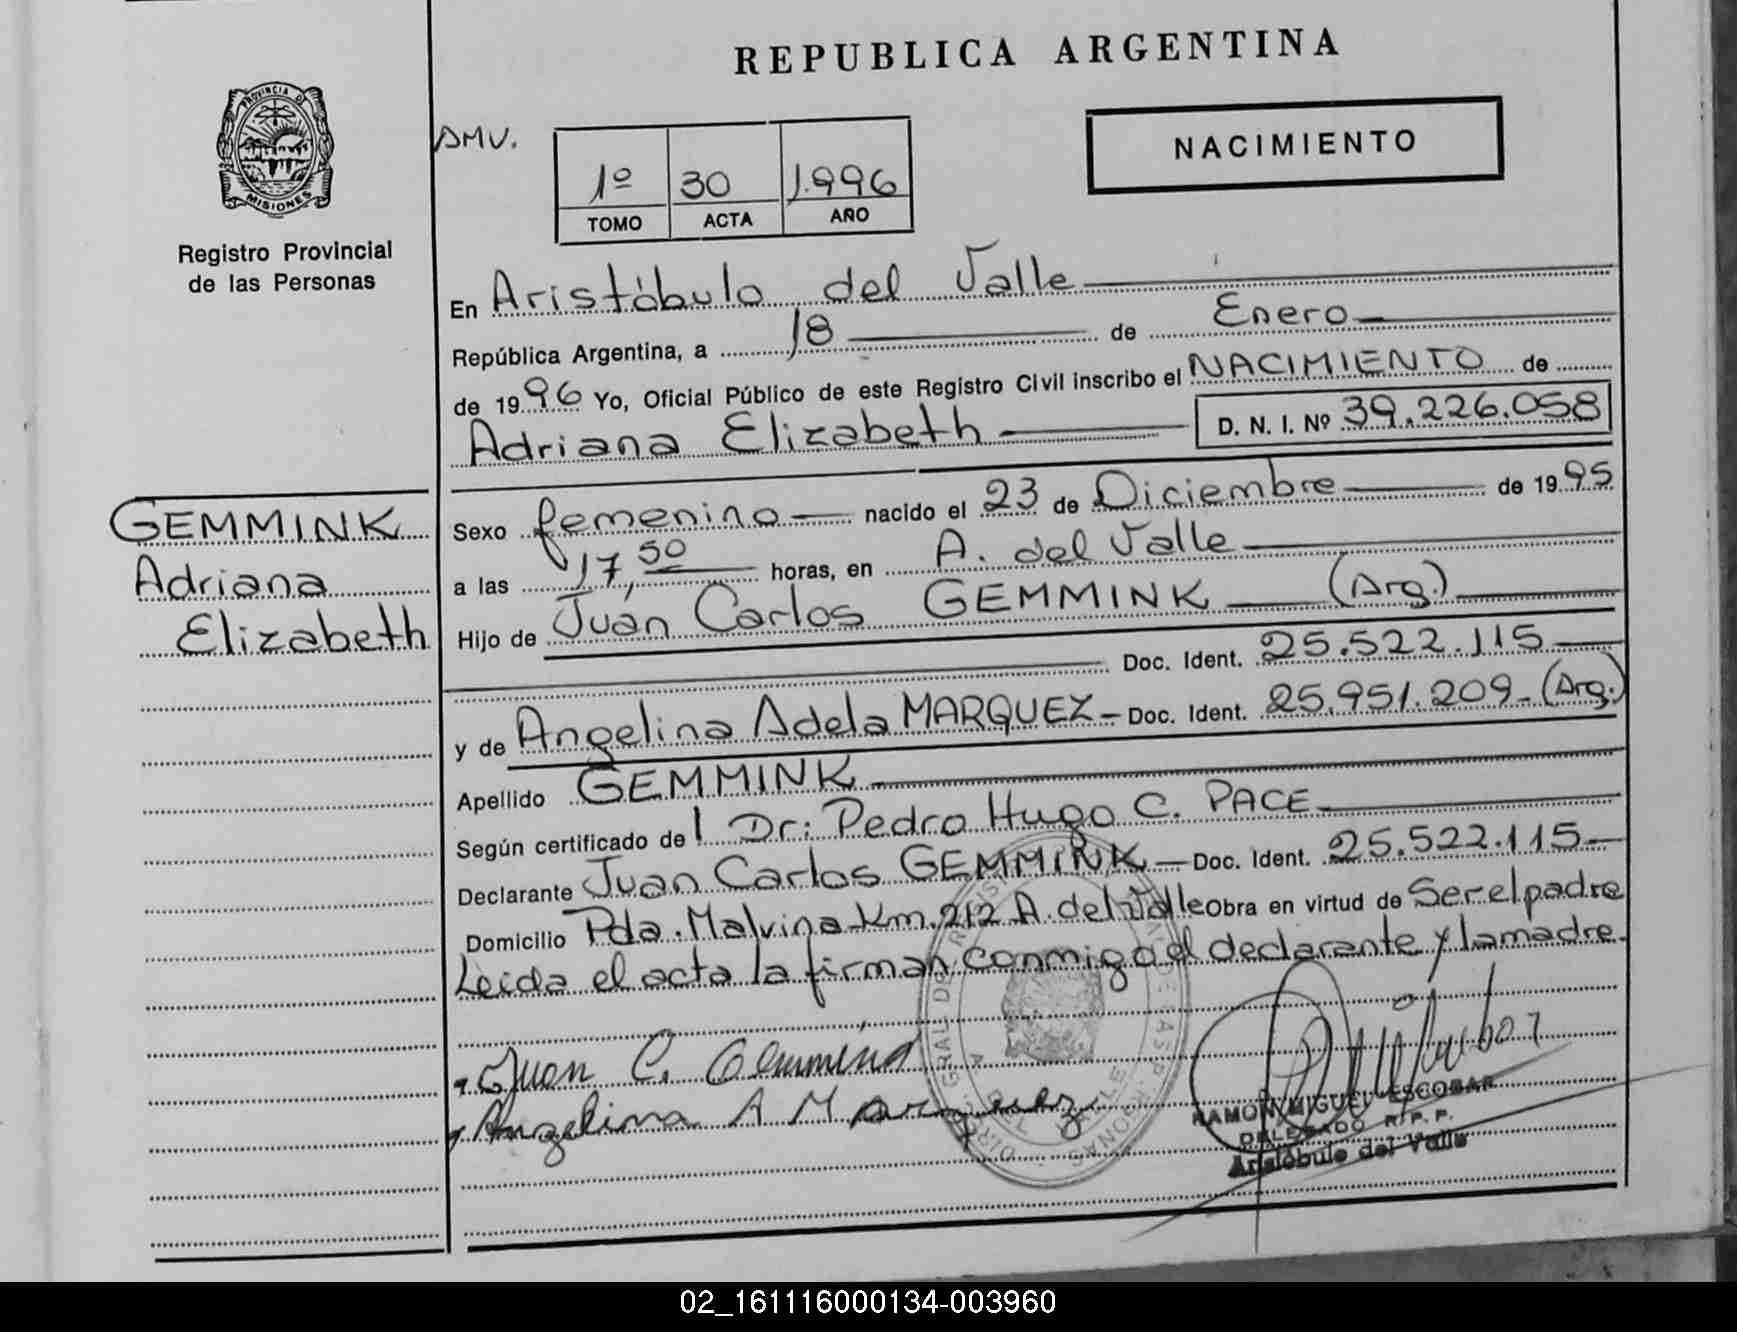 REPUBLICA ARGENTINA
PROVINCIA DE
MISIONES
Registro Provincial
de las Personas
NACIMIENTO
1º 30 1.996
TOMO ACTA AÑO
En Aristóbulo del Valle
República Argentina, a 18 de Enero
de 1996 Yo, Oficial Público de este Registro Civil inscribo el NACIMIENTO de
Adriana Elizabeth D. N. I. Nº 39.226.058
GEMMINK
Adriana
Elizabeth
Sexo femenino nacido el 23 de Diciembre de 1995
a las 17,50 horas, en A. del Valle
Hijo de Juan Carlos GEMMINK (Arg.)
Doc. Ident. 25.522.115
y de Angelina Adela MARQUEZ Doc. Ident. 25.951.209 (Arg.)
Apellido GEMMINK
Según certificado de l Dr: Pedro Hugo C. PACE
Declarante Juan Carlos GEMMINK Doc. Ident. 25.522.115
Domicilio Pda. Malvina Km. 212 A. del Valle Obra en virtud de Ser el padre
Leida el acta la firman conmigo el declarante y la madre.
Juan C. Gemmink
Angelina A Marquez
RAMON MIGUEL ESCOBAR
DELEGADO R. P. P.
Aristóbulo del Valle
02_161116000134-003960